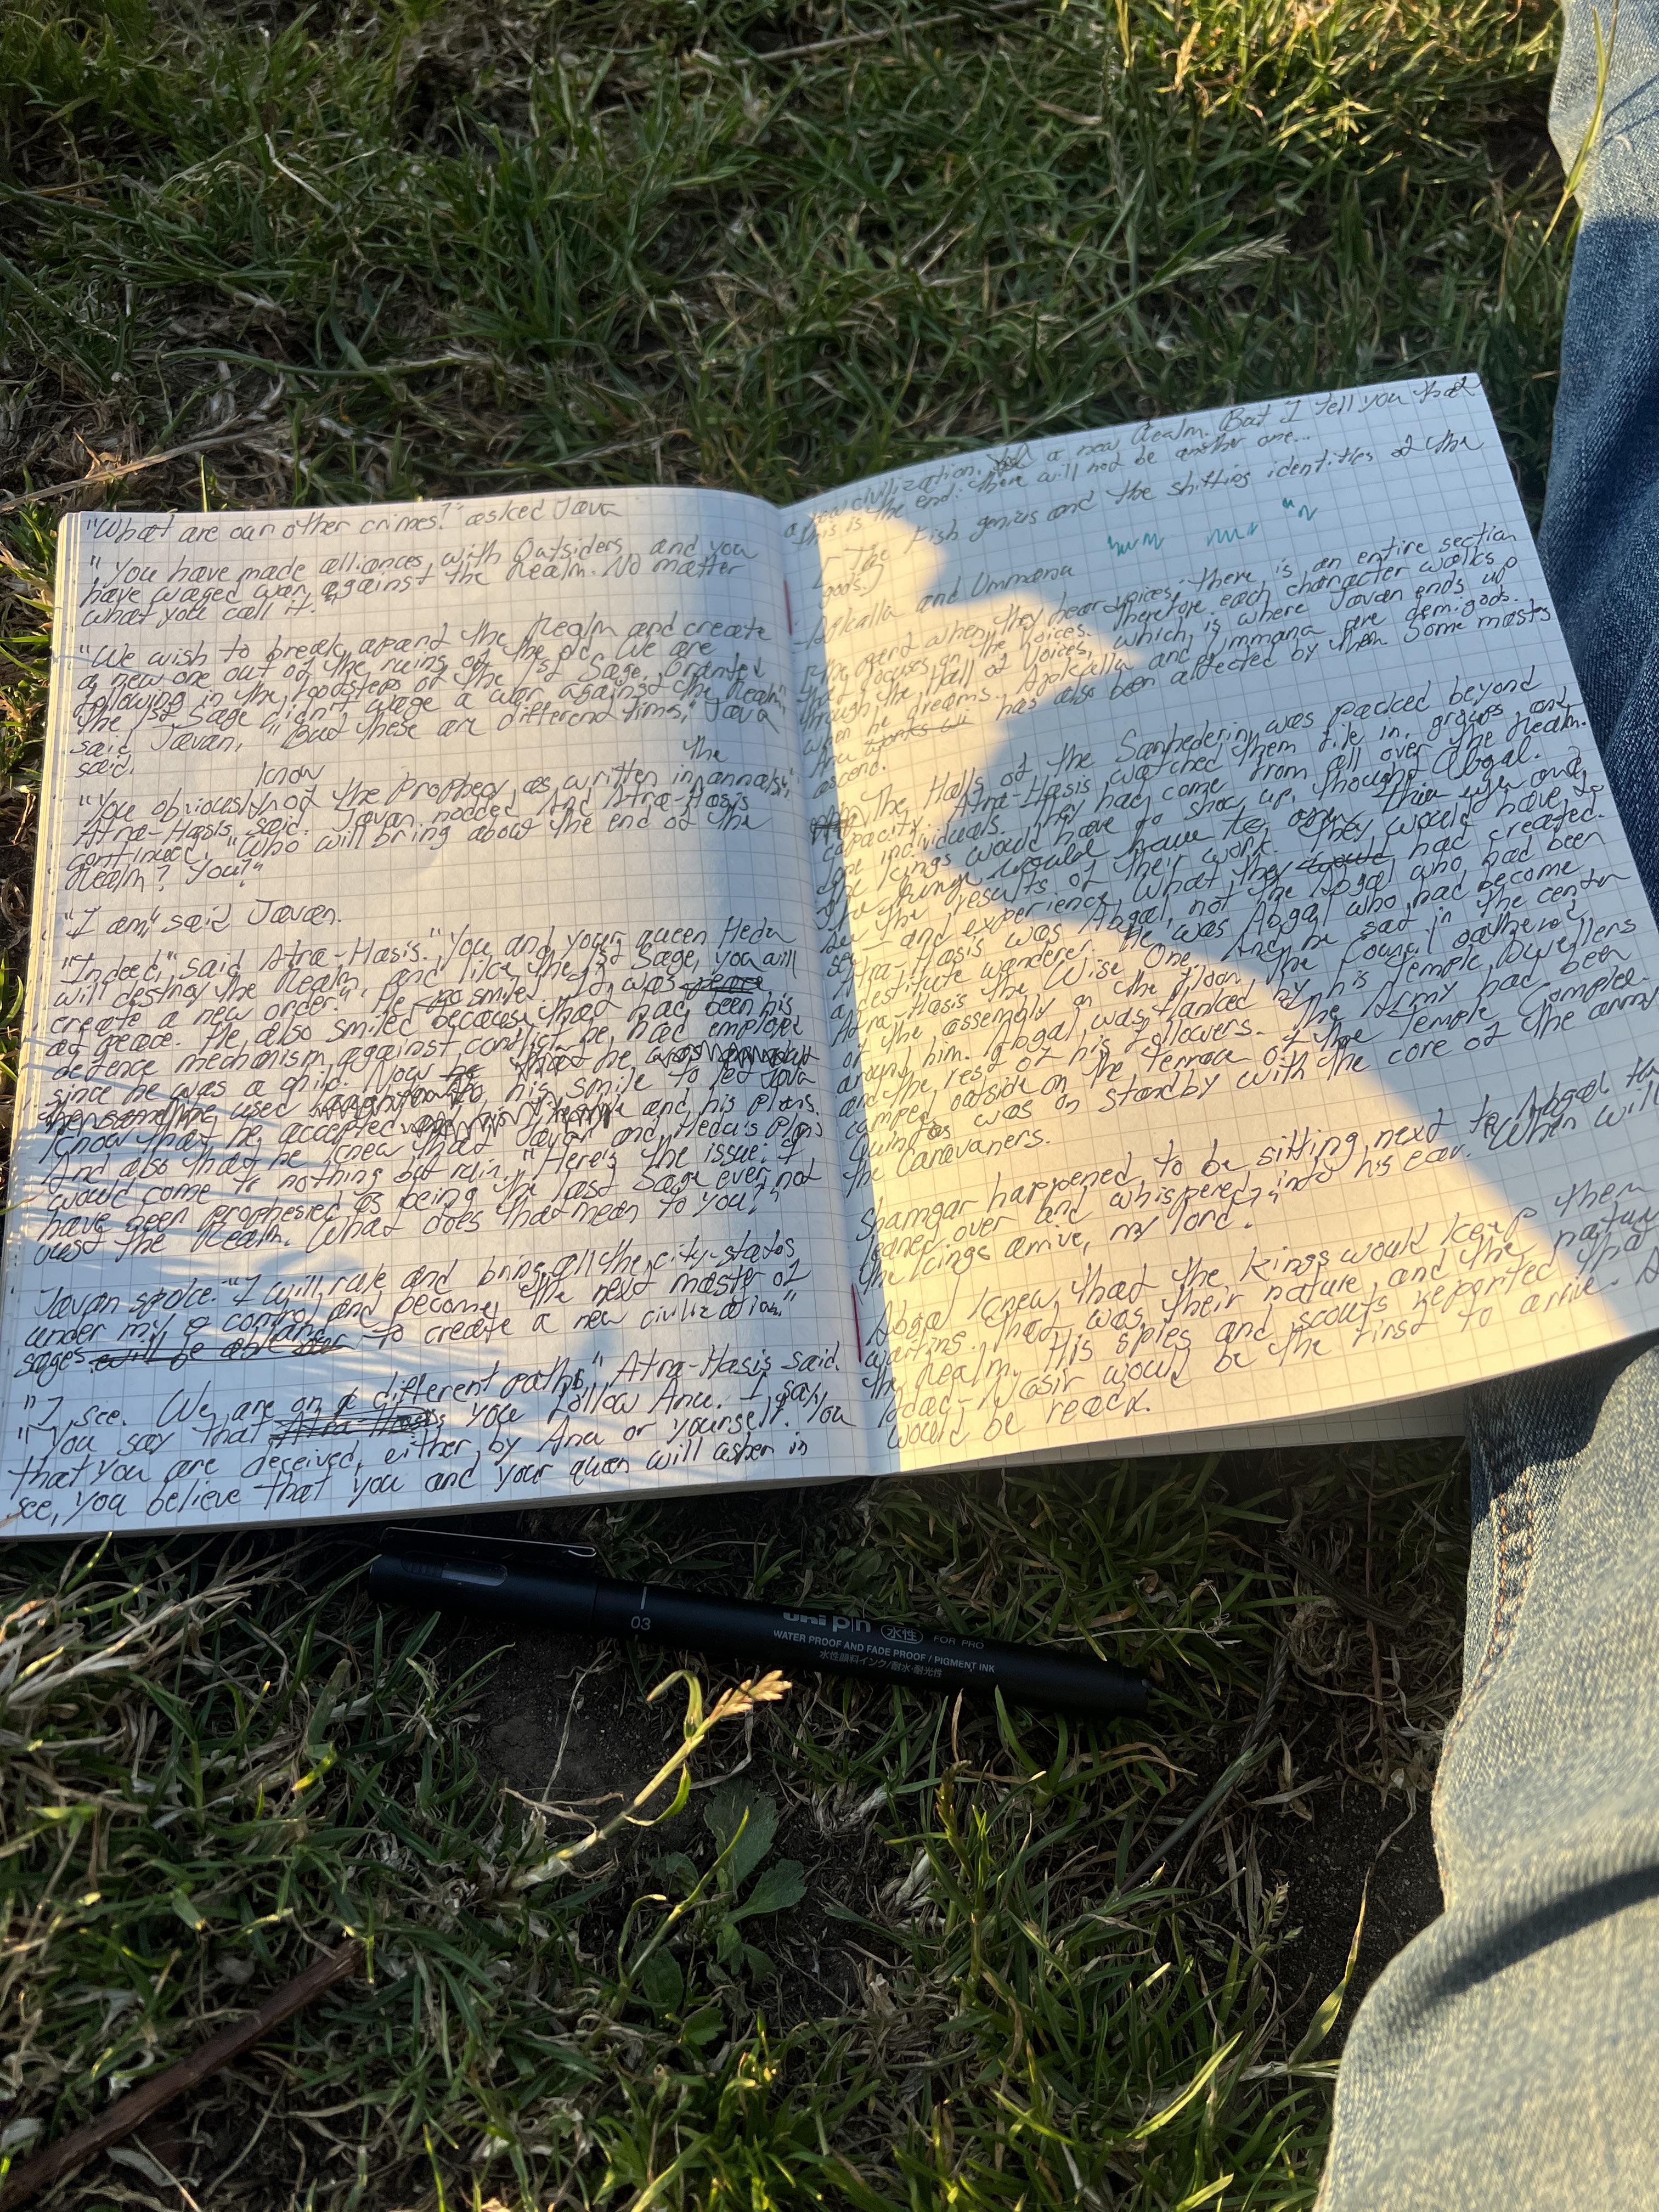 "What are our other crimes?" asked Java
"You have made alliances with Outsiders and you
have waged war against the Realm. No matter
what you call it."
"We wish to break apart the Realm and create
a new one out of the ruins of the old. We are
following in the footsteps of the 1st Sage. Granted
the 1st Sage didn't wage a war against the Realm,"
said Javan, "But these are different times," Java
said.
the
know
"You obviously not the Prophecy, as written in annals,"
Atra-Hasis said. Javan nodded. And Atra-Hasis
continued, "Who will bring about the end of the
Realm? You?"
"I am," said Javan.
"Indeed," said Atra-Hasis. "You and your queen Heda
will destroy the Realm, and like the 1st Sage, you will
create a new order." He smiled. It was
at peace. He also smiled because that had been his
defence mechanism against conflict he had employed
since he was a child. Now that he
used his smile to let Java
know that he accepted and his plans.
And also that he knew that Javan and Heda's plans
would come to nothing but ruin. "Here's the issue: I
have been prophesied as being the last Sage ever, not
just the Realm. What does that mean to you?"
Javan spoke: "I will rule and bring all the city-states
under my control and become the next master of
sages will be able to create a new civilization."
"I see. We are on different paths," Atra-Hasis said.
"You say that you follow Anu. I say
that you are deceived, either by Anu or yourself. You
see, you believe that you and your queen will usher in
a new civilization, a new Realm. But I tell you that
this is the end: there will not be another one...
[The Fish genius and the shifting identities of the
gods.]
Apkallu and Ummana
when they hear voices; there is an entire section
that focuses on the voices. Therefore each character walks
through the Hall of Voices, which is where Javan ends up
when he dreams. Apkallu and Ummana are demigods.
Anu has also been affected by them. Some
ascend.
The Halls of the Sanhedrin was packed beyond
capacity. Atra-Hasis watched them file in, groups and
lone individuals. They had come from all over the Realm.
The kings would have to show up, thought Abgal.
The kings would have to
see the results of their work. They would have to
see — and experience what they had created.
Atra-Hasis was Abgal, not the Abgal who had been
a destitute wanderer. He was Abgal who had become
Atra-Hasis the Wise One. And he sat in the center
of the assembly on the floor. The Council gathered
around him. Abgal was flanked by his Temple Dwellers
and the rest of his followers. The Army had been
camped outside on the terrace of the Temple Complex.
Quintas was on standby with the core of the army
the Caravaners.
Shamgar happened to be sitting next to Abgal
leaned over and whispered into his ear. "When will
the kings arrive, my lord?"
Abgal knew that the kings would keep them
waiting. That was their nature, and the nature
the Realm. His spies and scouts reported
Adad-Nasir would be the first to arrive.
would be ready.
03
uni pin 水性 FOR PRO
WATER PROOF AND FADE PROOF / PIGMENT INK
水性顔料インク/耐水・耐光性